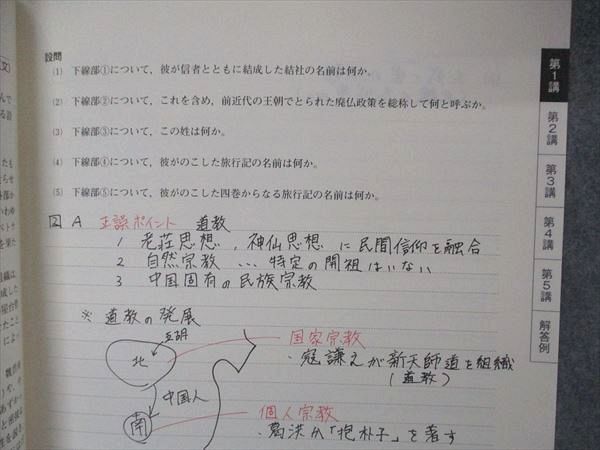 設問
(1) 下線部①について，彼が信者とともに結成した結社の名前は何か。
(2) 下線部②について，これを含め，前近代の王朝でとられた廃仏政策を総称して何と呼ぶか。
(3) 下線部③について，この姓は何か。
(4) 下線部④について，彼がのこした旅行記の名前は何か。
(5) 下線部⑤について，彼がのこした四巻からなる旅行記の名前は何か。
第1講
第2講
第3講
第4講
第5講
解答例
2 A 正誤ポイント 道教
1 老荘思想，神仙思想に民間信仰を融合
2 自然宗教 … 特定の開祖はいない
3 中国固有の民族宗教
※ 道教の発展
五胡
北
国家宗教
・寇謙之が新天師道を組織
(道教)
中国人
南
個人宗教
・葛洪が「抱朴子」を著す